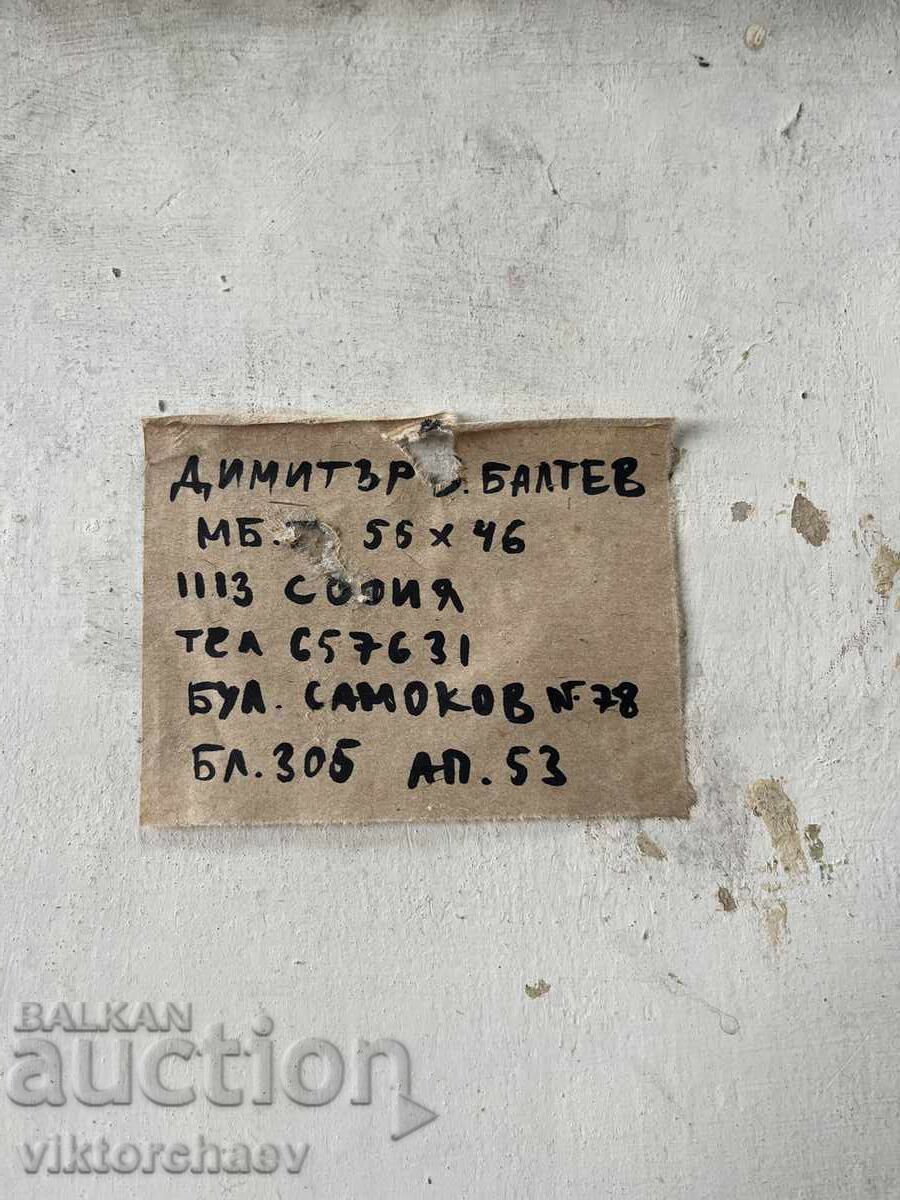 ДИМИТЪР БАЛТЕВ
МБ. 55 х 46
1113 СОФИЯ
ТЕЛ 657631
БУЛ. САМОКОВ № 78
БЛ. 305 АП. 53
BALKAN
auction
viktorchaev